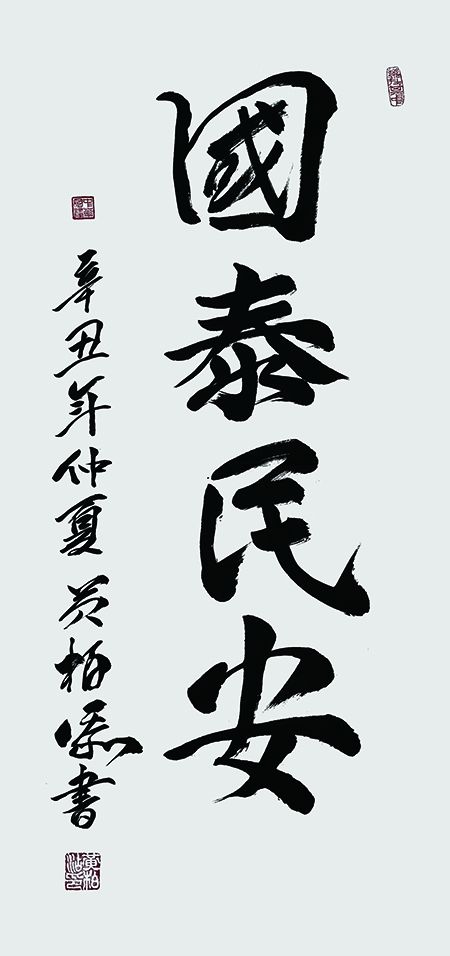 國泰民安
辛丑年仲夏黄柏添書